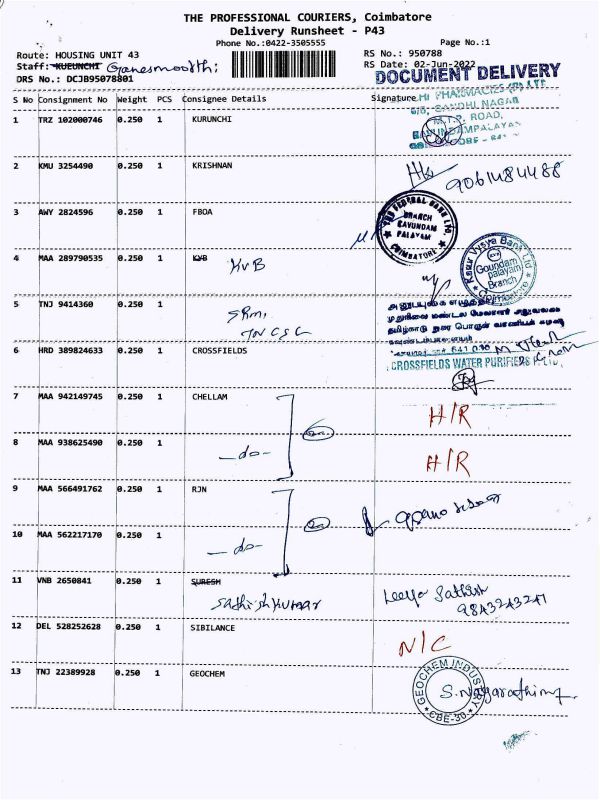 THE PROFESSIONAL COURIERS, Coimbatore
Delivery Runsheet - P43
Phone No.:0422-3505555
Page No.:1
Route: HOUSING UNIT 43
RS No.: 950788
Staff: KUEUNCHI Ganesmoorthi
RS Date: 02-Jun-2022
DRS No.: DCJB95078801
DOCUMENT DELIVERY
S No Consignment No Weight PCS Consignee Details Signature
1 TRZ 102000746 0.250 1 KURUNCHI
PHARMACIES
GANDHI NAGAR
ROAD,
2 KMU 3254490 0.250 1 KRISHNAN 9061484488
3 AWY 2824596 0.250 1 FBOA
THE FEDERAL BANK LTD.
BRANCH
GAVUNDAM
PALAYAM
COIMBATORE
4 MAA 289790535 0.250 1 KVB KVB
Karur Vysya Bank Ltd
Goundam
palayam
Branch
Coimbatore
5 TNJ 9414360 0.250 1 SRM,
TNCSC
முதுநிலை மண்டல மேலாளர் அலுவலகம்
6 HRD 389824633 0.250 1 CROSSFIELDS
CROSSFIELDS WATER PURIFIERS P. LTD.,
7 MAA 942149745 0.250 1 CHELLAM H/R
8 MAA 938625490 0.250 1 -do- H/R
9 MAA 566491762 0.250 1 RJN
10 MAA 562217170 0.250 1 -do-
11 VNB 2650841 0.250 1 SURESH
Sathishkumar
Leeya Sathish
9843243241
12 DEL 528252628 0.250 1 SIBILANCE N/C
13 TNJ 22389928 0.250 1 GEOCHEM
GEOCHEM INDUSTRY
CBE-30